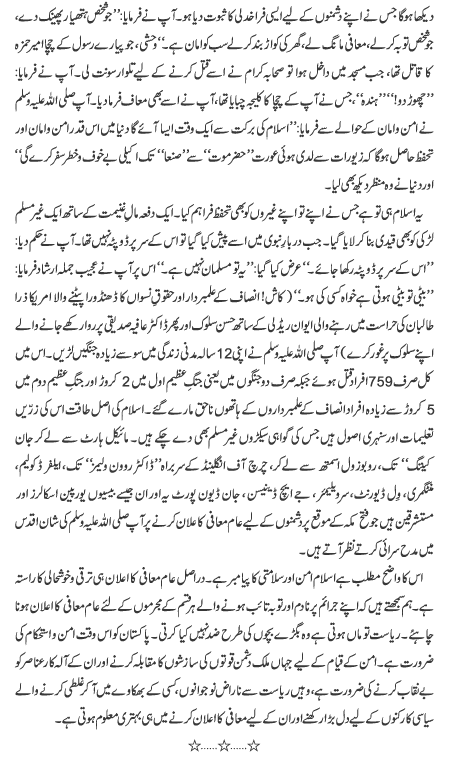 دیکھا ہوگا جس نے اپنے دشمنوں کے لیے ایسی فراخدلی کا ثبوت دیا ہو۔ آپ نے فرمایا: ’’جو شخص ہتھیار پھینک دے،
جو شخص توبہ کرلے، معافی مانگ لے، گھر کی کواڑ بند کرلے سب کو امان ہے۔‘‘ وحشی، جو پیارے رسول کے چچا امیر حمزہ
کا قاتل تھا، جب مسجد میں داخل ہوا تو صحابہ کرام نے اسے قتل کرنے کے لیے تلوار سونت لی۔ آپ نے فرمایا:
’’چھوڑ دو!‘‘ ’’ہندہ‘‘، جس نے آپ کے چچا کا کلیجہ چبایا تھا، آپ نے اسے بھی معاف فرما دیا۔ آپ صلی اللہ علیہ وسلم
نے امن و امان کے حوالے سے فرمایا: ’’اسلام کی برکت سے ایک وقت ایسا آئے گا دنیا میں اس قدر امن و امان اور
تحفظ حاصل ہوگا کہ زیورات سے لدی ہوئی عورت ’’حضر موت‘‘ سے ’’صنعا‘‘ تک اکیلی بے خوف و خطر سفر کرے گی‘‘
اور دنیا نے وہ منظر دیکھ بھی لیا۔
یہ اسلام ہی تو ہے جس نے اپنے تو اپنے غیروں کو بھی تحفظ فراہم کیا۔ ایک دفعہ مالِ غنیمت کے ساتھ ایک غیر مسلم
لڑکی کو بھی قیدی بنا کر لایا گیا۔ جب دربارِ نبوی میں اسے پیش کیا گیا تو اس کے سر پر دوپٹہ نہیں تھا۔ آپ نے حکم دیا:
’’اس کے سر پر دوپٹہ رکھا جائے۔‘‘ عرض کیا گیا: ’’یہ تو مسلمان نہیں ہے۔‘‘ اس پر آپ نے عجیب جملہ ارشاد فرمایا:
’’بیٹی تو بیٹی ہوتی ہے خواہ کسی کی ہو۔‘‘ (کاش! انصاف کے علمبردار اور حقوقِ نسواں کا ڈھنڈورا پیٹنے والا امریکا ذرا
طالبان کی حراست میں رہنے والی ایوان ریڈلی کے ساتھ حسن سلوک اور پھر ڈاکٹر عافیہ صدیقی پر روا رکھے جانے والے
اپنے سلوک پر غور کرے) آپ صلی اللہ علیہ وسلم نے اپنی 12 سالہ مدنی زندگی میں سو سے زیادہ جنگیں لڑیں۔ اس میں
کل صرف 759 افراد قتل ہوئے جبکہ صرف دو جنگوں میں یعنی جنگِ عظیم اول میں 2 کروڑ اور جنگِ عظیم دوم میں
5 کروڑ سے زیادہ افراد انصاف کے علمبرداروں کے ہاتھوں ناحق مارے گئے۔ اسلام کی اصل طاقت اس کی زرّیں
تعلیمات اور سنہری اصول ہیں جس کی گواہی سیکڑوں غیر مسلم بھی دے چکے ہیں۔ مائیکل ہارٹ سے لے کر جان
کیننگ‘‘ تک، ریوبزول اسمتھ سے لے کر، چرچ آف انگلینڈ کے سربراہ ’’ڈاکٹر روون ولیمز‘‘ تک، ایلفرڈ کولیم،
منٹگمری، ول ڈیورنٹ، سرولیمیئر، جے ایچ ڈینیسن، جان ڈیون پورٹ یہ اور ان جیسے بیسیوں یورپین اسکالرز اور
مستشرقین ہیں جو فتح مکہ کے موقع پر دشمنوں کے لیے عام معافی کا اعلان کرنے پر آپ صلی اللہ علیہ وسلم کی شانِ اقدس
میں مدح سرائی کرتے نظر آتے ہیں۔
اس کا واضح مطلب ہے اسلام امن اور سلامتی کا پیامبر ہے۔ دراصل عام معافی کا اعلان ہی ترقی و خوشحالی کا راستہ
ہے۔ ہم سمجھتے ہیں کہ اپنے جرائم پر نادم اور توبہ تائب ہونے والے ہر قسم کے مجرموں کے لیے عام معافی کا اعلان ہونا
چاہئے۔ ریاست تو ماں ہوتی ہے وہ بگڑے بچوں کی طرح ضد نہیں کیا کرتی۔ پاکستان کو اس وقت امن و استحکام کی
ضرورت ہے۔ امن کے قیام کے لیے جہاں ملک دشمن قوتوں کی سازشوں کا مقابلہ کرنے اور ان کے آلہ کار عناصر کو
بے نقاب کرنے کی ضرورت ہے، وہیں ریاست سے ناراض نوجوانوں، کسی کے بہکاوے میں آکر غلطی کرنے والے
سیاسی کارکنوں کے لیے دل بڑا رکھنے اور ان کے لیے معافی کا اعلان کرنے میں ہی بہتری معلوم ہوتی ہے۔
☆......☆......☆